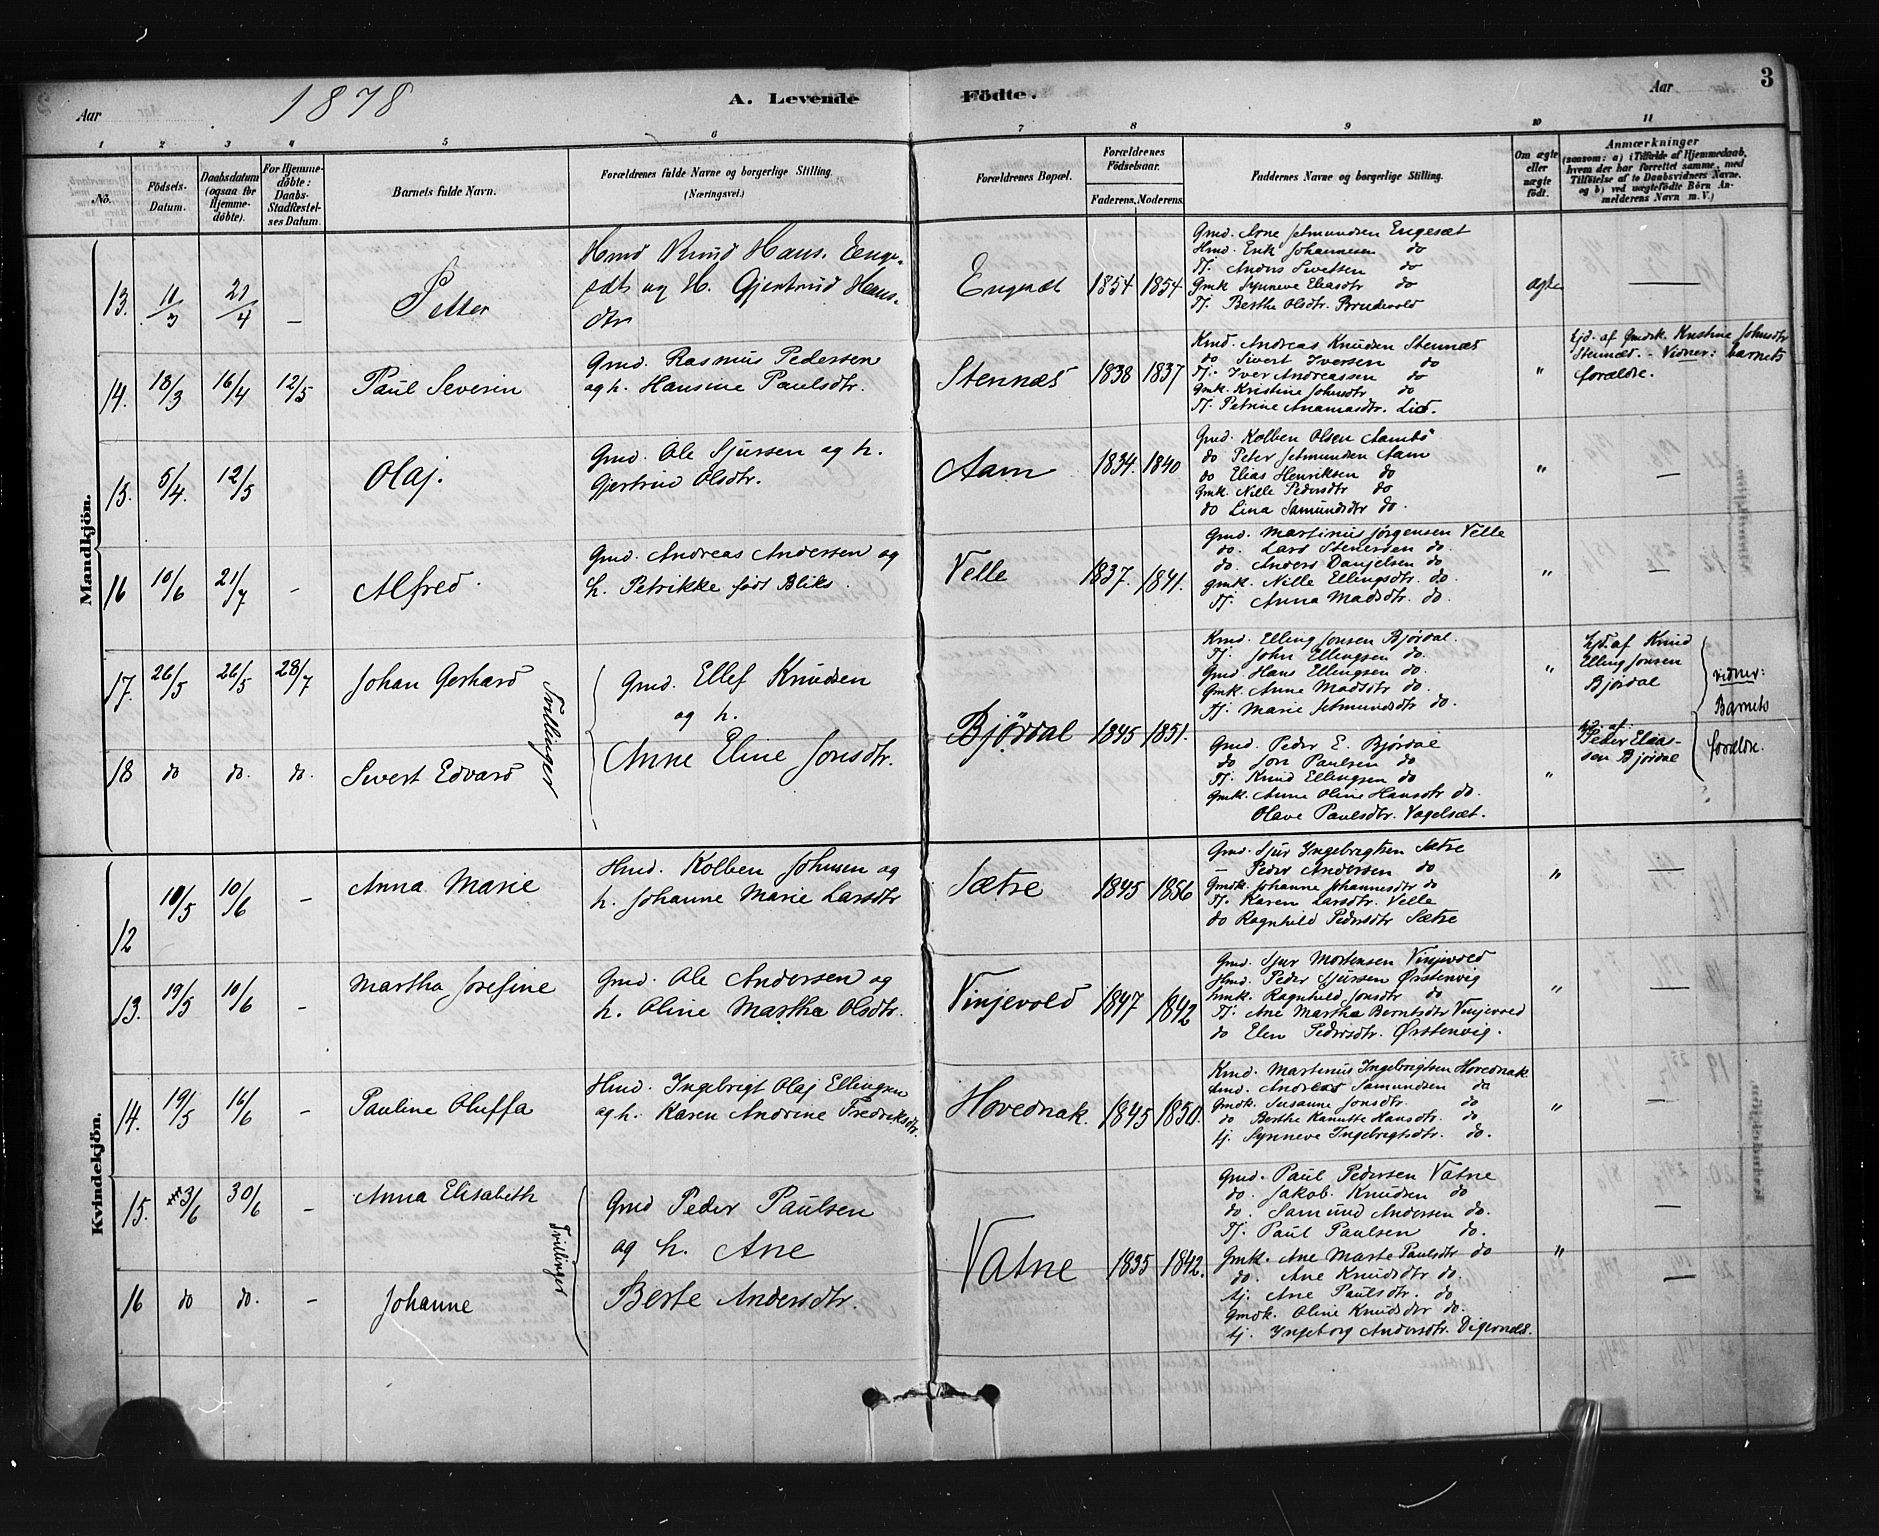 Aar 1878 A. Levende Födte. Aar 3
1 2 3 4 5 6 7 8 9 10 11
No.
Födsels-Datum.
Daabsdatum (ogsaa for Hjemmedøbte).
For Hjemmedøbte: Daabs-Stadfæstelses Datum.
Barnets fulde Navn.
Forældrenes fulde Navne og borgerlige Stilling. (Næringsvei.)
Forældrenes Bopæl.
Forældrenes Födselsaar.
Faderens. Moderens.
Faddernes Navne og borgerlige Stilling.
Om ægte eller uægte født.
Anmærkninger
(saasom: a) i Tilfælde af Hjemmedaab, hvem der har forrettet samme, med Tilføielse af to Daabsvidners Navne, og b) ved uægtefødte Börn Anmelderens Navn m.V.)
Mandkjön.
13. 11/3 21/4 – Petter
Hmd Knud Hans. Enge-
sæt og H. Gjertrud Hans-
dtr
Engesæt 1854 1854
Gmd. Arne Setmundsen Engesæt
Hmd. Erik Johannesen do
Tj. Anders Sivertsen do
Gmk Synneve Eliasdtr do
Tj. Berthe Olsdtr. Brudevold
ægte —
14. 18/3 16/4 12/5 Paul Severin
Gmd. Rasmus Pedersen
og h. Hansine Paulsdtr.
Stennæs 1838 1837
Kmd. Andreas Knudsen Stennæs
do Sivert Iversen do
Tj. Iver Andreassen do
Gmk. Kristine Johnsdtr do
Tj. Petrine Ananiasdtr. Lid.
"
Hjd. af Gmdsk. Kristine Johnsdtr
Stennæs. – Vidner: barnets
forældre.
15. 5/4. 12/5 Olaf.
Gmd. Ole Sjursen og h.
Gjertrud Olsdtr.
Aam 1834. 1840
Gmd. Kolben Olsen Aambø
do Peter Setmundsen Aam
do Elias Henriksen do
Gmk. Nille Pedersdtr do
do Lina Samundsdtr do.
" –
16 10/6 21/7 – Alfred.
Gmd. Andreas Andersen og
h. Petrikke født Bliks.
Velle 1837. 1841.
Gmd. Martinus Jørgensen Velle
do. Lars Stenersen do.
do. Anders Danjelsen do.
Gmk. Nille Ellingsdtr. do.
Tj. Anna Madsdtr. do.
" –
17. 26/5 26/5 28/7 Johan Gerhard
Tvillinger
Gmd. Ellef Knudsen
og h.
Anne Eline Jonsdtr.
Bjørdal 1845 1851.
Kmd. Elling Jonsen Bjørdal.
Tj. John Ellingsen do.
Gmd. Hans Ellingsen do.
Gmk. Anne Madsdtr do.
Tj. Marie Setmundsdtr do.
"
Hjd. af Kmd
Elling Jonsen
Bjørdal
vidner:
Barnets
forældre.
18 do do. do. Sivert Edvard
Gmd. Peder E. Bjørdal
do Jon Paulsen do
Tj. Knud Ellingsen do
Gmk. Anne Oline Hansdtr do.
Olave Paulsdtr. Vagelsæt.
"
Peder Elias-
sen Bjørdal
Kvindekjön.
12 10/5 10/6 – Anna Marie
Hmd. Kolben Johnsen og
h. Johanne Marie Larsdtr
Sætre 1845 1856
Gmd. Sjur Yngebrigtsen Sætre
– Peder Andersen do
Gmdk. Johanne Johannesdtr do
Tj. Karen Larsdtr. Velle
do Ragnhild Pedersdtr Sætre
" —
13. 19/5 10/6 – Martha Josefine
Gmd. Ole Andersen og
h. Oline Martha Olsdtr.
Vinjevold 1847 1842
Gmd. Sjur Mortensen Vinjevold
Hmd. Peder Sjursen Ørstenvig
Hmk. Ragnhild Jonsdtr do
Tj. Ane Martha Berntsdtr Vinjevold
do Elen Pedersdtr. Ørstenvig.
" —
14. 19/5 16/6 – Pauline Oluffa
Hmd. Ingebrigt Olaj Ellingsen
og h. Karen Andrine Fredriksdtr.
Hovednak. 1845 1850.
Kmd. Martinus Ingebrigtsen Hovednak
Hmd. Andreas Samundsen do
Gmdk. Susanne Jonsdtr. do
do Berthe Kanutte Hansdtr. do
tj. Synneve Ingebrigtsdtr. do.
" –
15. 3/6 30/6 – Anna Elisabeth
Tvillinger
Gmd Peder Paulsen
og h. Ane
Berte Andersdtr.
Vatne 1835 1842.
Gmd. Paul Pedersen Vatne
do. Jakob. Knudsen do
do. Samund Andersen do.
Tj. Paul Paulsen do.
Gmk. Ane Marte Paulsdtr do
do. Ane Knudsdtr do.
tj. Ane Paulsdtr. do
Gmdk. Oline Knudsdtr do.
tj. Yngeborg Andersdtr. Digernes.
" –
16 do do. – Johanne
—